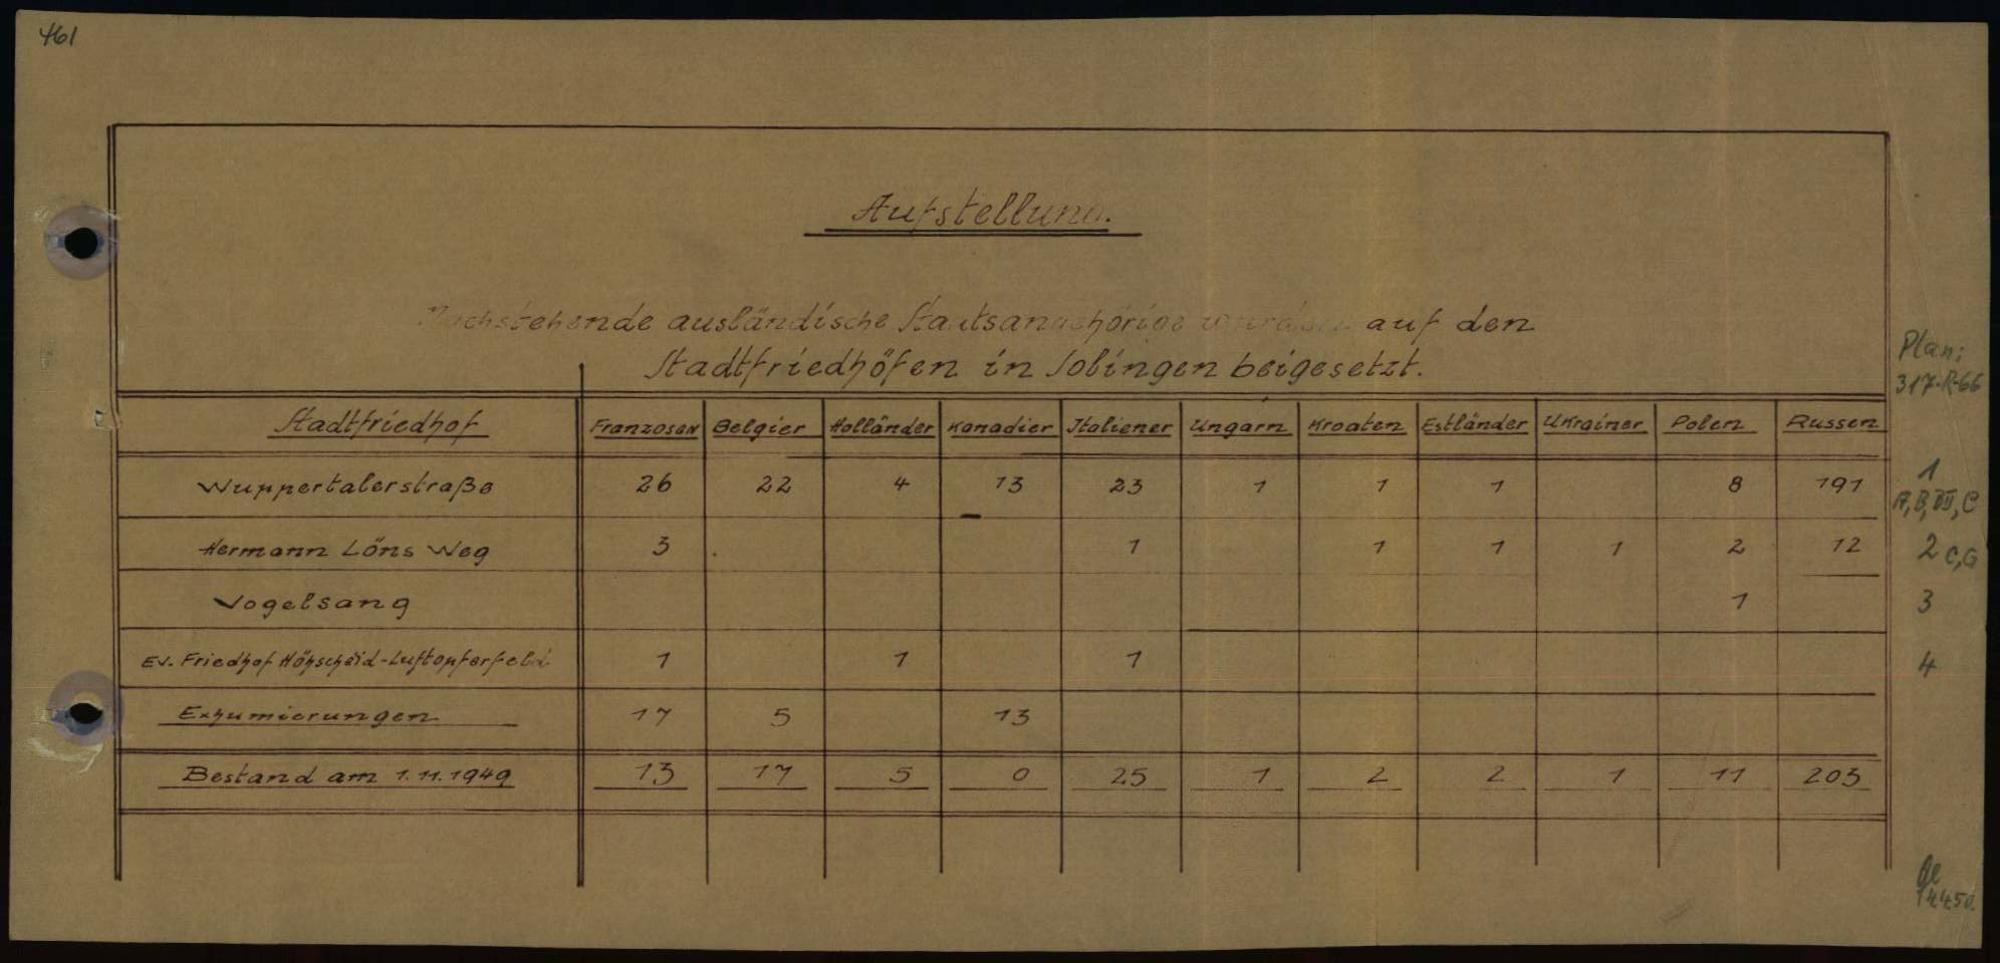 461
Aufstellung.
Nachstehende ausländische Staatsangehörige wurden auf den
Stadtfriedhöfen in Solingen beigesetzt.
Plan:
317-R-66
Stadtfriedhof Franzosen Belgier Holländer Kanadier Italiener Ungarn Kroaten Estländer Ukrainer Polen Russen
Wuppertalerstraße 26 22 4 13 23 1 1 1 8 191 1
A, B, C
Hermann Löns Weg 3 1 1 1 1 2 12 2 C, G
Vogelsang 1 3
Ev. Friedhof Höhscheid-Luftopferfeld 1 1 1 4
Exhumierungen 17 5 13
Bestand am 1.11.1949 13 17 5 0 25 1 2 2 1 11 203